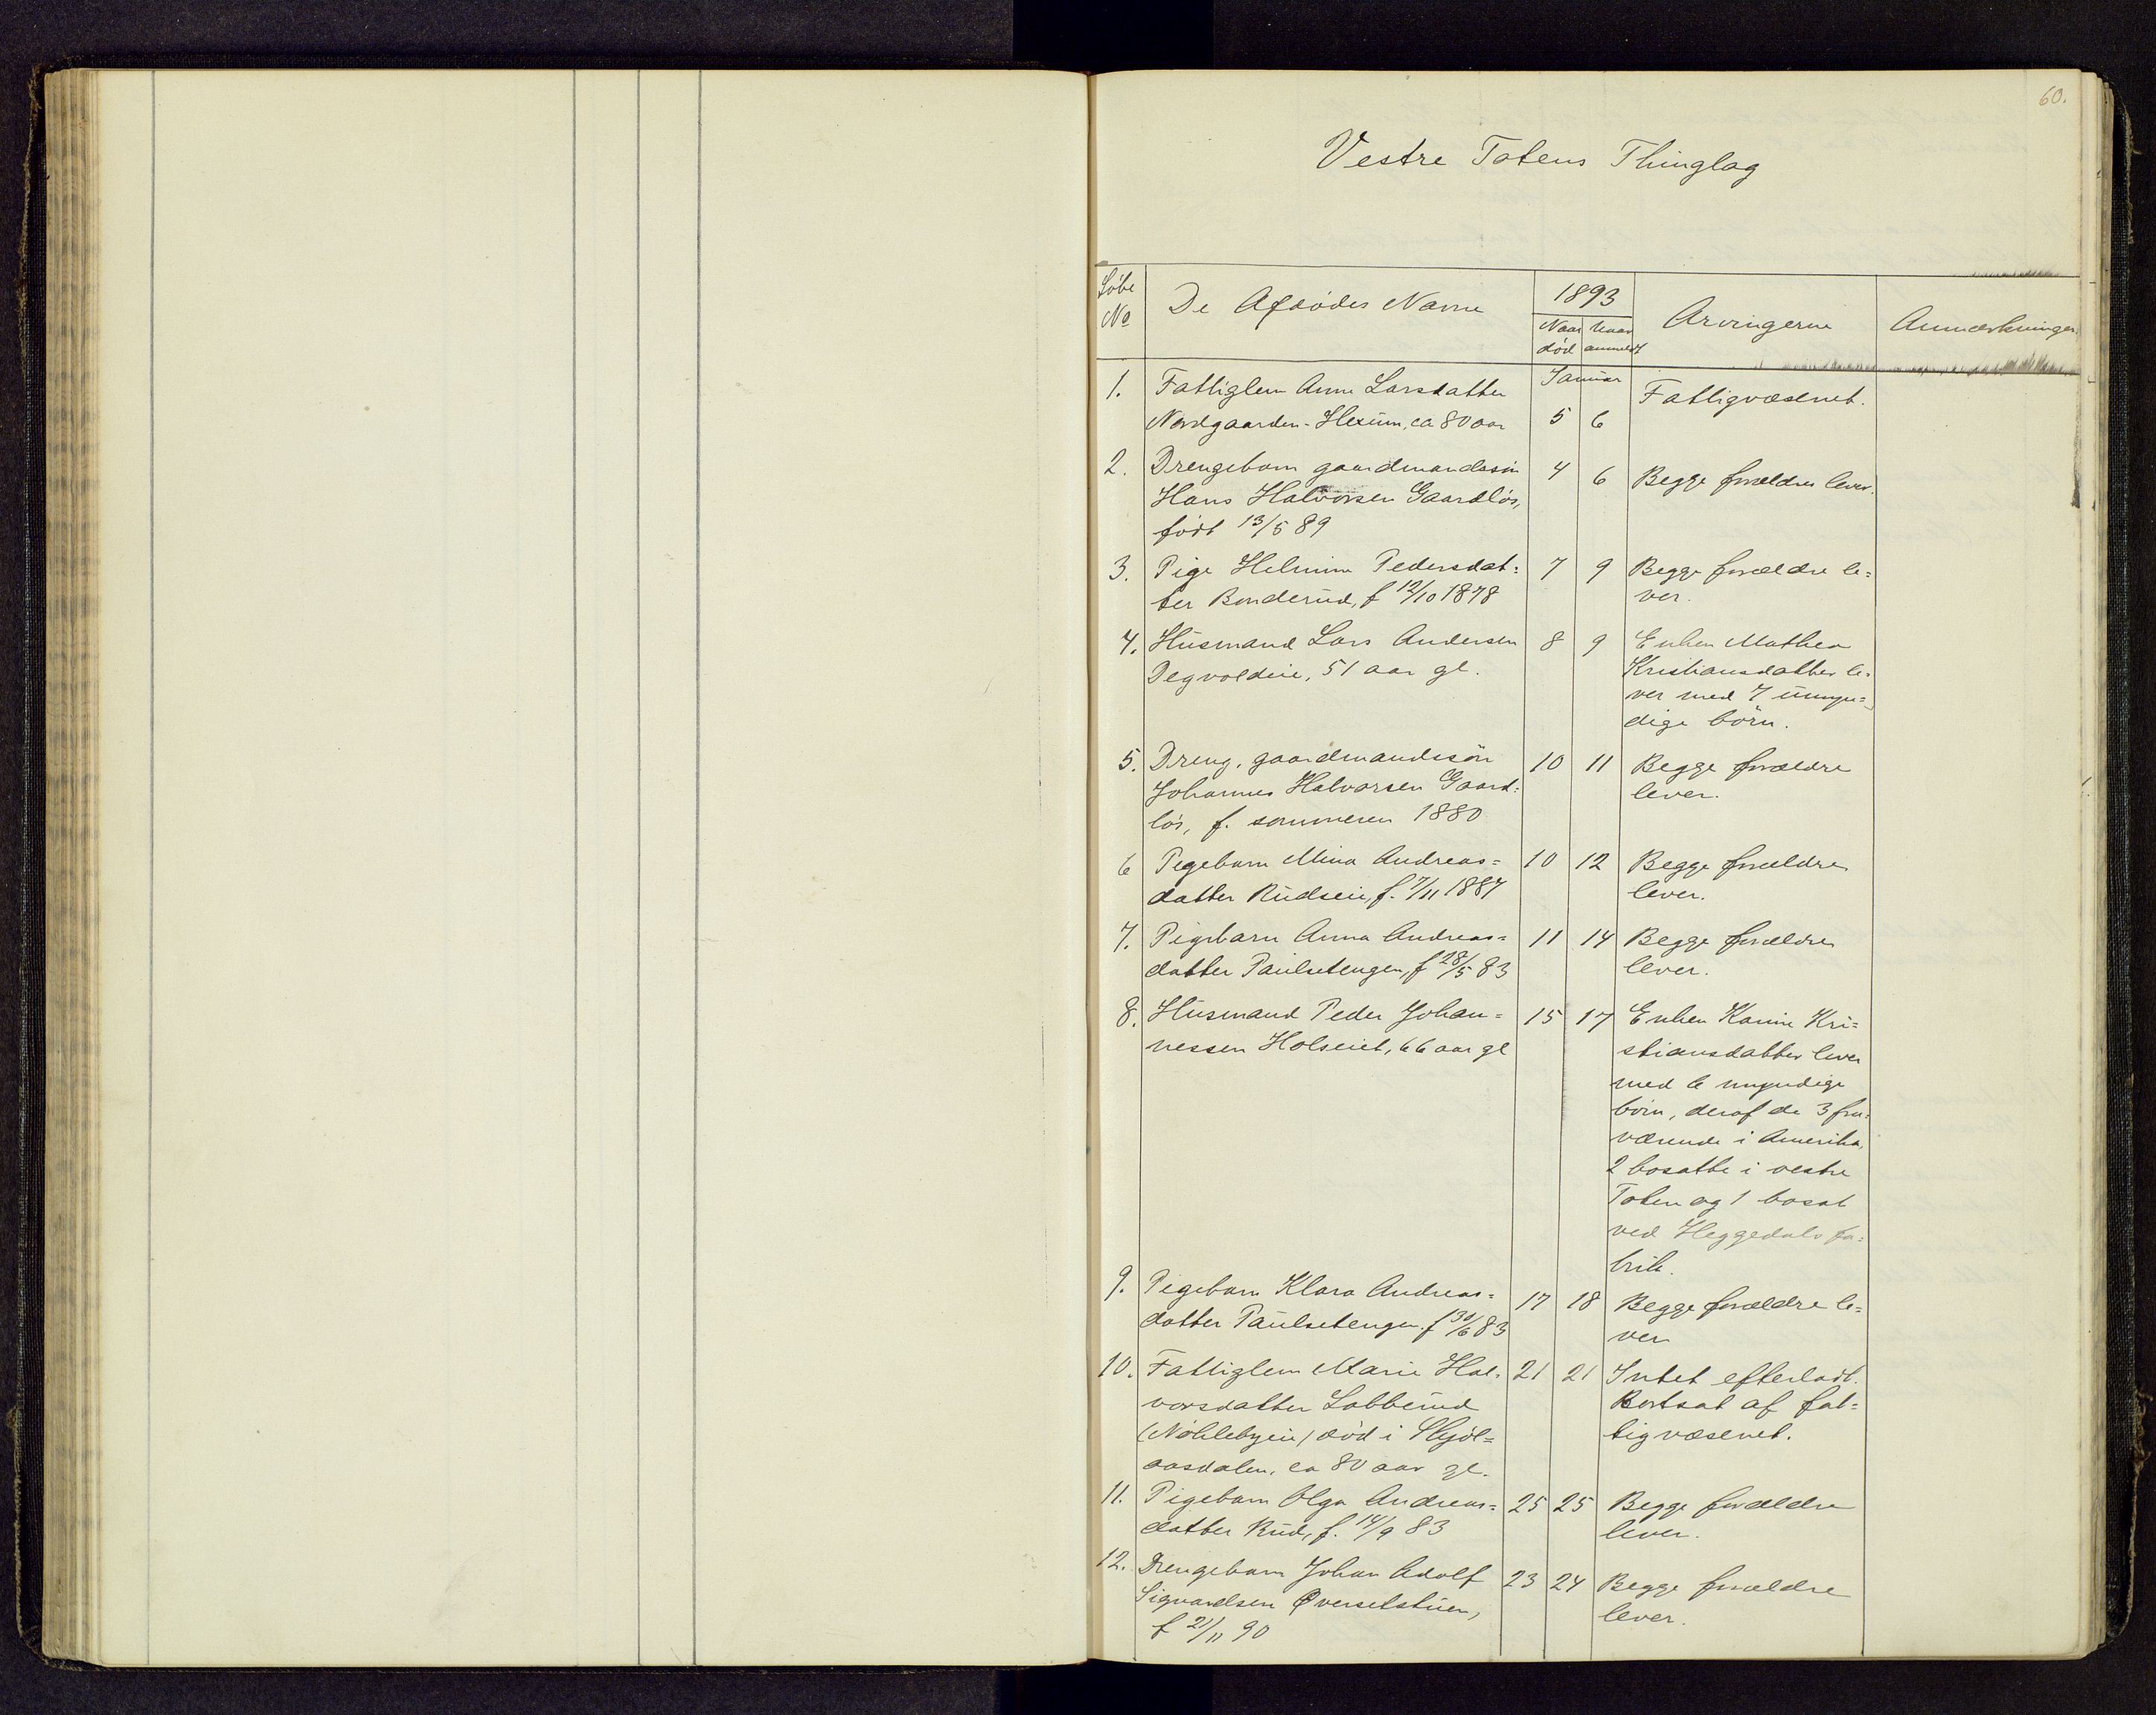 60.
Vestre Totens Thinglag
Løbe No De Afdødes Navne 1893 Arvingerne Anmærkninger.
Naar død Naar anmeldt
Januar
1. Fattiglem Anne Larsdatter Fattigvæsenet.
Nordgaarden-Hexum, ca 80 aar 5 6
2. Drengebarn gaardmandssøn 4 6 Begge forældre lever.
Hans Halvorsen Gaardløs,
født 13/5 89
3. Pige Helmine Pedersdat= 7 9 Begge forældre le=
ter Bonderud, f 12/10 1878 ver.
4. Husmand Lars Andersen 8 9 Enken Mathea
Degvoldeie, 51 aar gl. Kristiansdatter le=
ver med 7 umyn=
dige børn.
5. Dreng, gaardmandssøn 10 11 Begge forældre
Johannes Halvorsen Gaard= lever.
løs, f. sommeren 1880
6 Pigebarn Mina Andreas= 10 12 Begge forældre
datter Rudseie, f. 7/11 1887 lever.
7. Pigebarn Anna Andreas= 11 14 Begge forældre
datter Paulsetengen, f 28/5 83 lever.
8. Husmand Peder Johan= 15 17 Enken Karine Kri=
nessen Holseiet, 66 aar gl stiansdatter lever
med 6 myndige
børn, deraf de 3 fra=
værende i Amerika,
2 bosatte i vestre
Toten og 1 bosat
ved Heggedals fa=
brik.
9. Pigebarn Klara Andreas= 17 18 Begge forældre le=
datter Paulsetengen. f 30/6 83 ver
10. Fattiglem Marie Hal= 21 21 Intet efterladt.
vorsdatter Lobberud Bortsat af fat=
(Nøklebyeie) død i Skjøl= tigvæsenet.
aasdalen, ca 80 aar gl.
11. Pigebarn Olga Andreas= 25 25 Begge forældre
datter Rud, f. 14/9 83 lever.
12. Drengebarn Johan Adolf 23 24 Begge forældre
Sigvardsen Øversetstuen, lever.
f 21/11 90